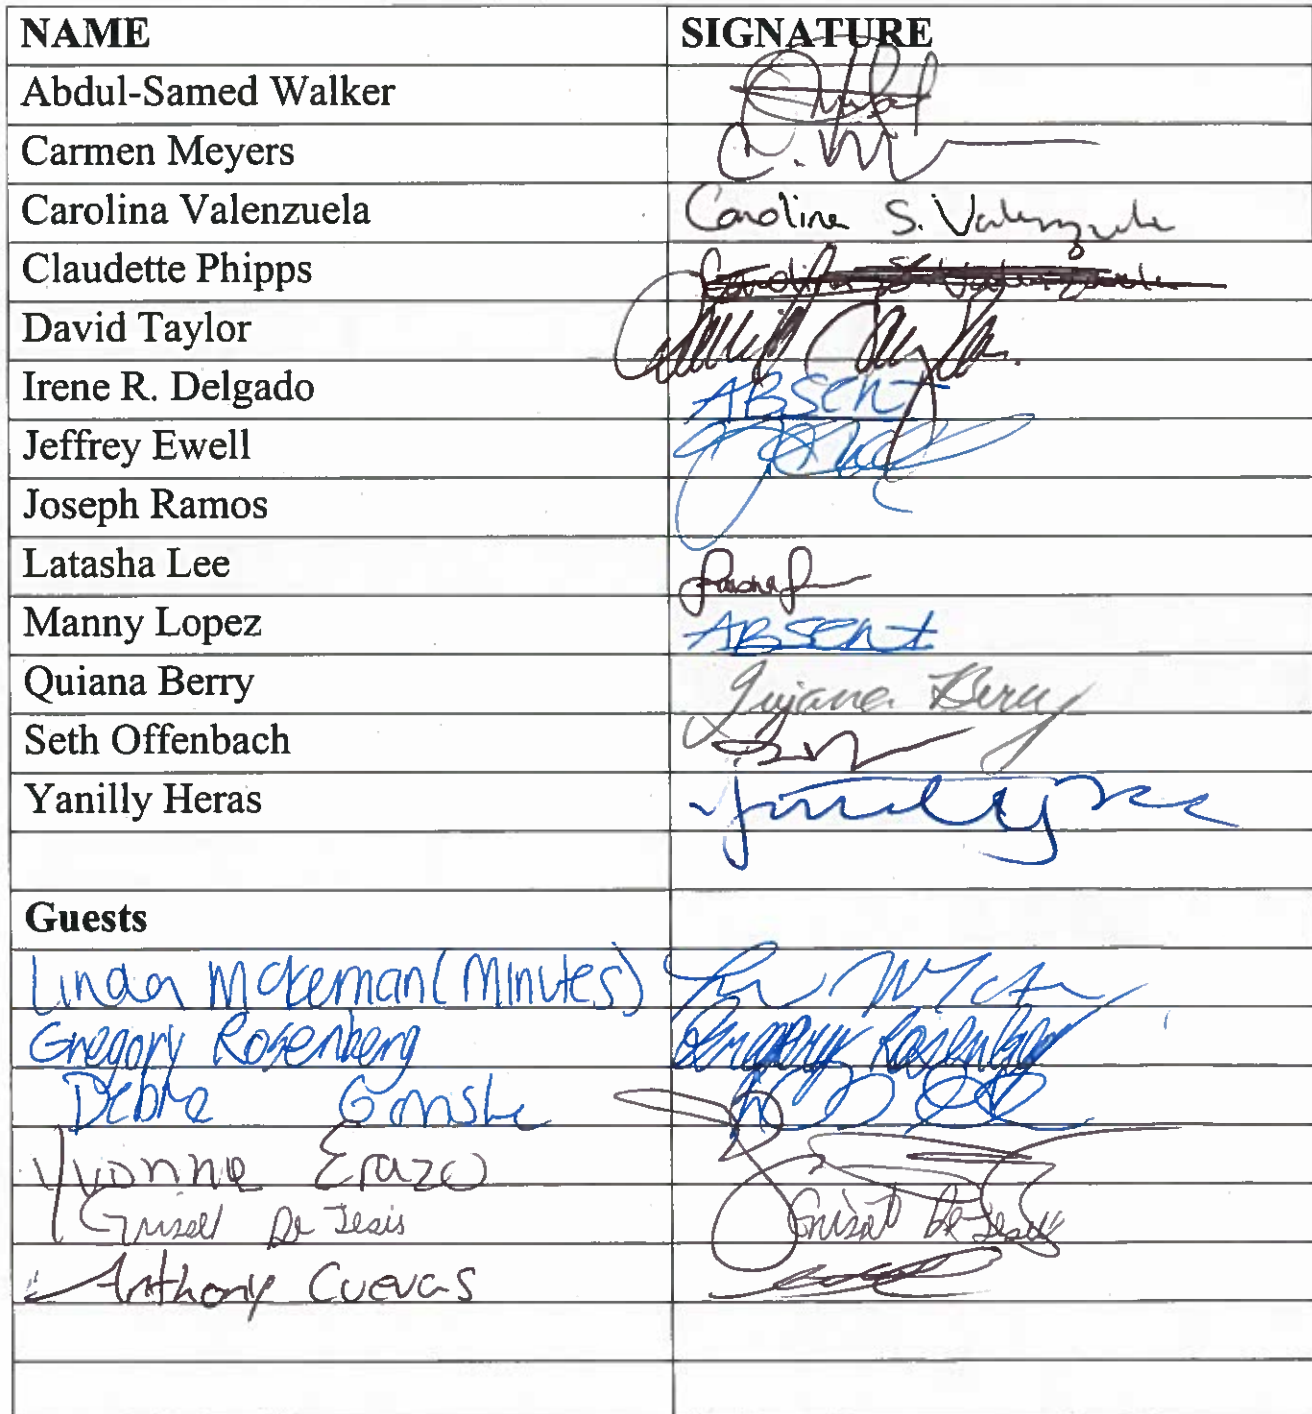 NAME SIGNATURE
Abdul-Samed Walker
Carmen Meyers C. M
Carolina Valenzuela Carolina S. Valenzuela
Claudette Phipps
David Taylor David Taylor
Irene R. Delgado ABSENT
Jeffrey Ewell
Joseph Ramos
Latasha Lee
Manny Lopez ABSENT
Quiana Berry Quiana Berry
Seth Offenbach
Yanilly Heras
Guests
Linda McKernan (Minutes)
Gregory Rosenberg Gregory Rosenberg
Debra
Yvonne Erazo
Grisel De Jesus Grisel De Jesus
Anthony Cuevas